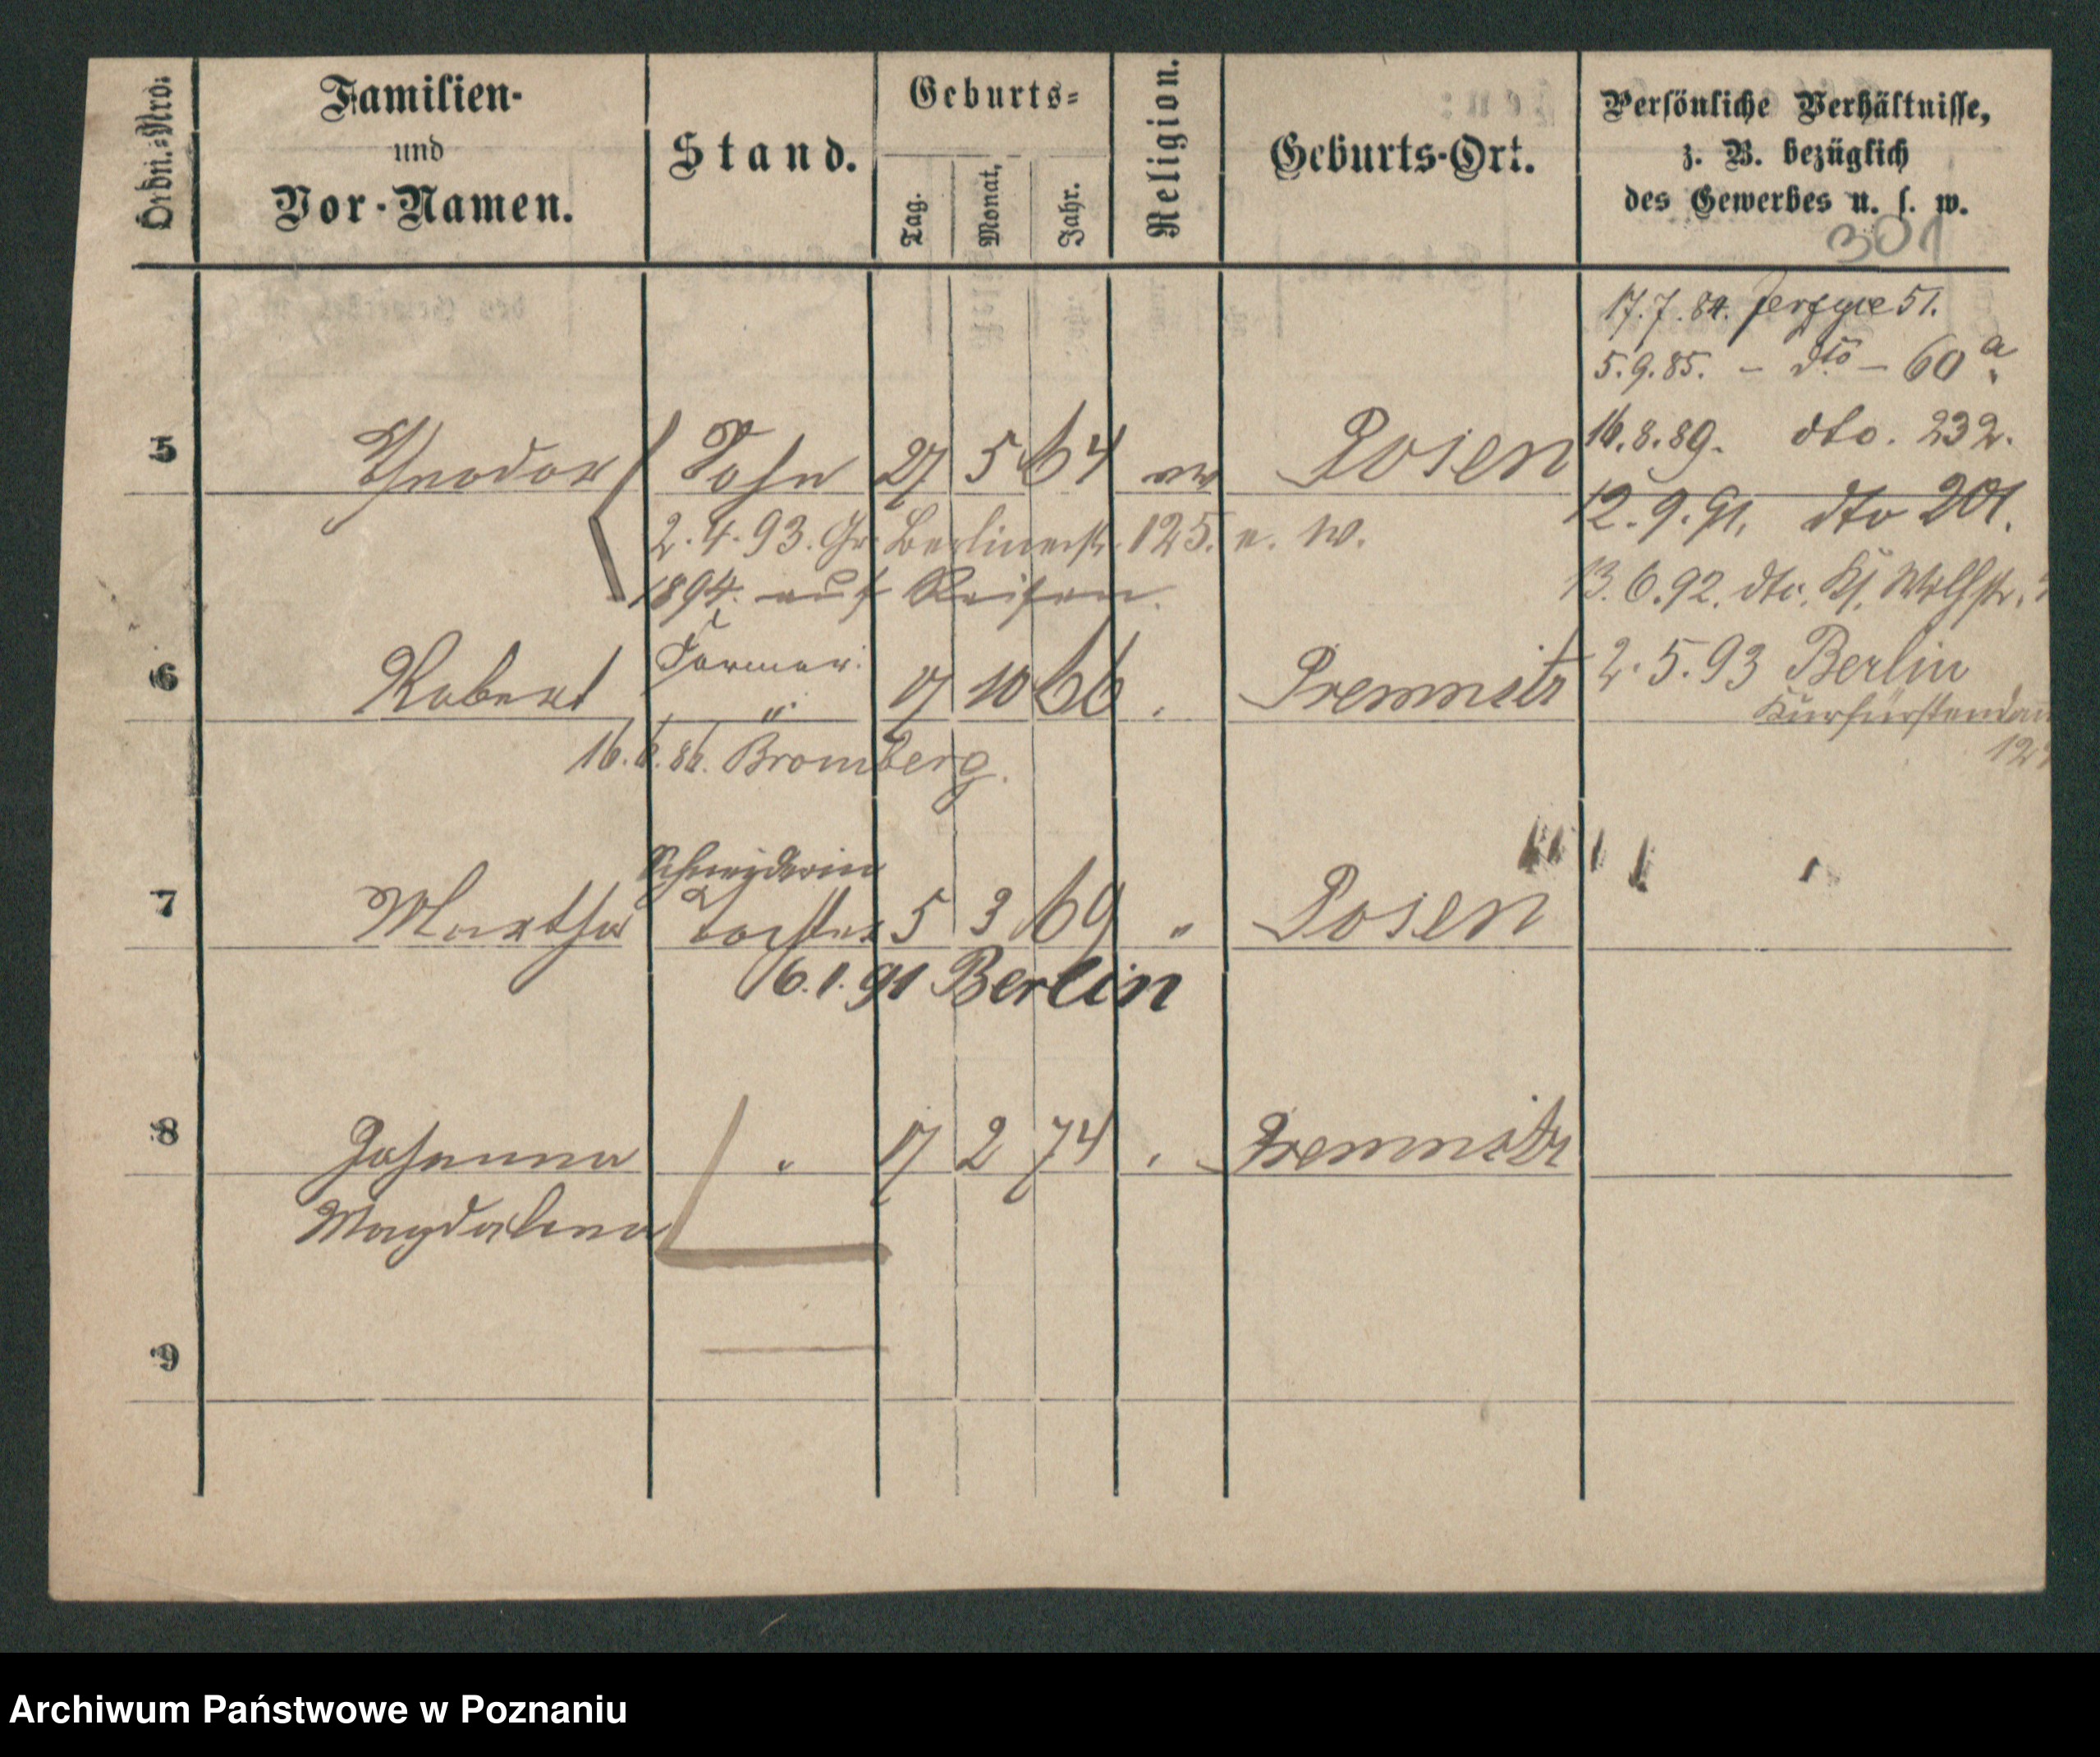 Ordn.=Nro.
Familien-
und
Vor-Namen.
Stand.
Geburts=
Tag.
Monat,
Jahr.
Religion.
Geburts-Ort.
Persönliche Verhältnisse,
z. B. bezüglich
des Gewerbes u. s. w.
301
17.7.84. Jerzyce 51.
5.9.85. – dto – 60 a.
16.8.89. dto. 232.
12.9.91. dto 201.
13.6.92. dto. Kl.
2.5.93 Berlin
Kurfürstendam
12
5 Theodor Sohn 27 5 64 ev Posen
2.4.93. Gr. Berlinerstr. 125. n. W.
1894. auf Reisen.
6 Robert Former " 17 10 66 Premnitz
16.6.86. Bromberg.
7 Martha Schneiderin Tochter 5 3 69 " Posen
6.1.91 Berlin
8 Johanna " 17 2 74 " Premnitz
Magdalena
9
Archiwum Państwowe w Poznaniu